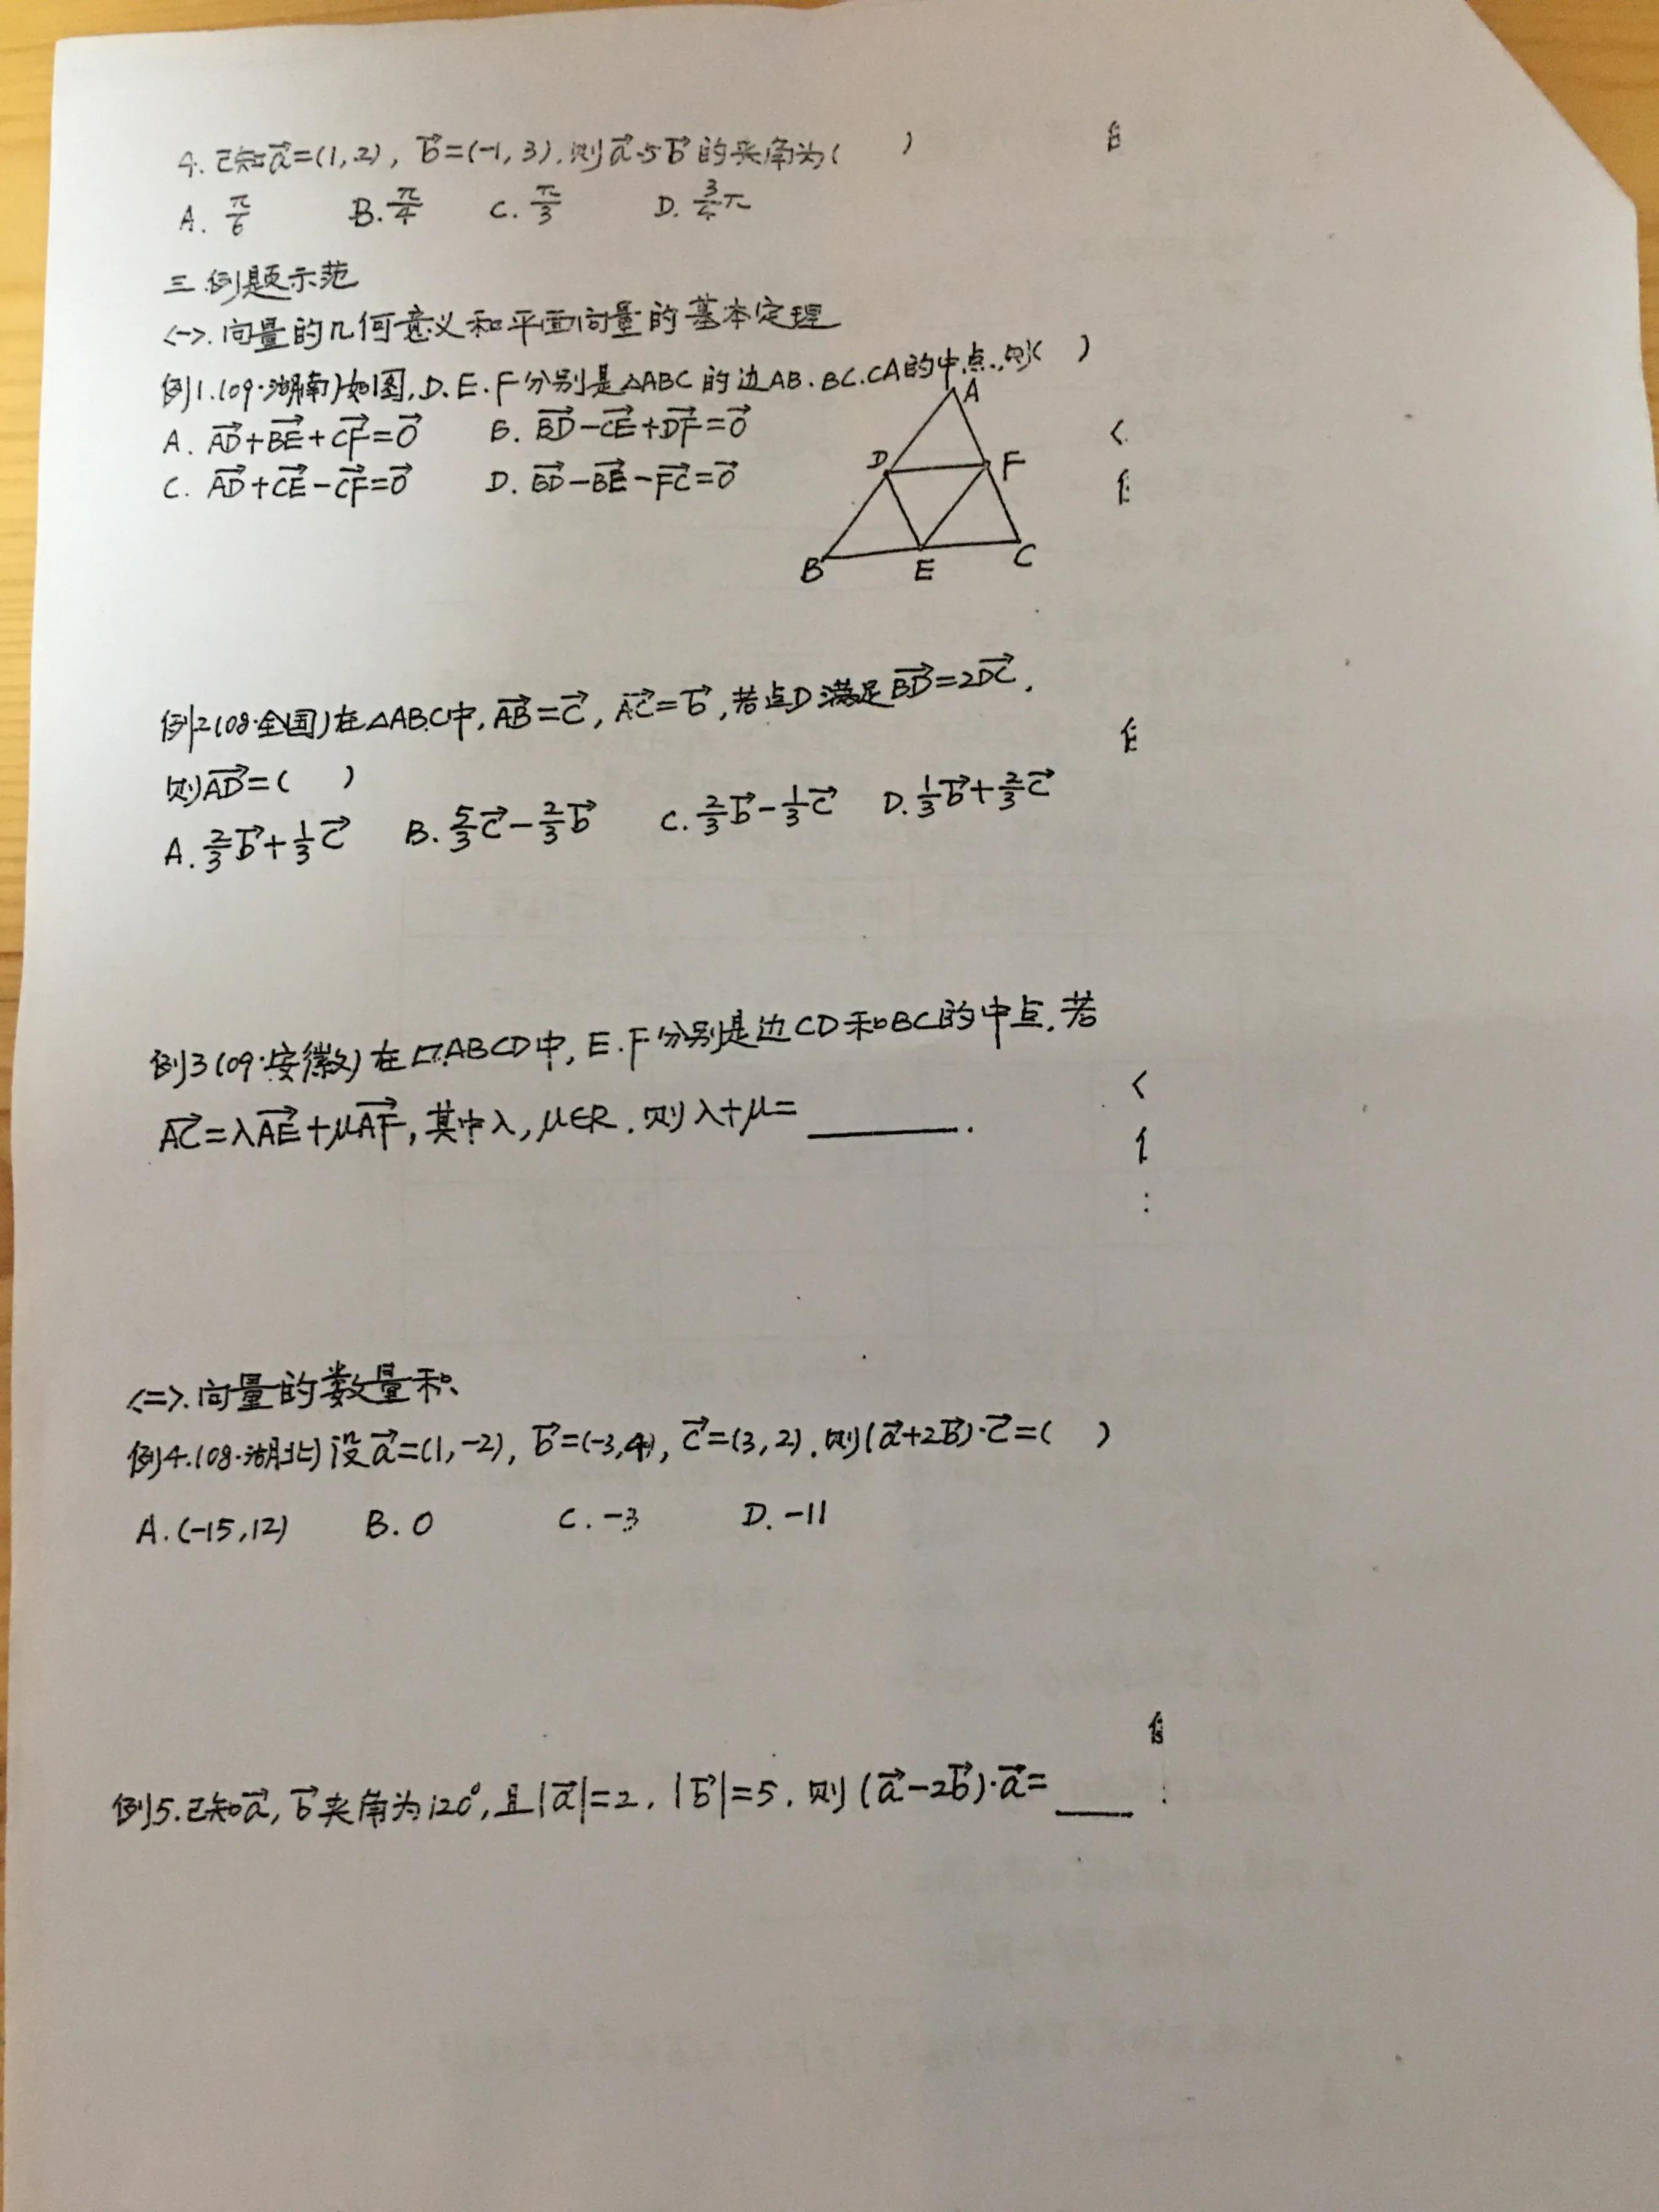 4. 已知a⃗=(1,2), b⃗=(-1,3).则a⃗与b⃗的夹角为( )
A. π/6 B. π/4 C. π/3 D. 3/4π
三.例题示范
<一>.向量的几何意义和平面向量的基本定理
例1.(09·湖南)如图,D.E.F分别是△ABC的边AB.BC.CA的中点.则( )
A. AD⃗+BE⃗+CF⃗=0⃗ B. BD⃗-CE⃗+DF⃗=0⃗
C. AD⃗+CE⃗-CF⃗=0⃗ D. BD⃗-BE⃗-FC⃗=0⃗
A
D F
B E C
例2(08·全国)在△ABC中,AB⃗=c⃗, AC⃗=b⃗,若点D满足BD⃗=2DC⃗.
则AD⃗=( )
A. 2/3b⃗+1/3c⃗ B. 5/3c⃗-2/3b⃗ C. 2/3b⃗-1/3c⃗ D. 1/3b⃗+2/3c⃗
例3(09·安徽)在▱ABCD中,E.F分别是边CD和BC的中点.若
AC⃗=λAE⃗+μAF⃗,其中λ,μ∈R.则λ+μ=______.
<二>.向量的数量积
例4.(08·湖北)设a⃗=(1,-2), b⃗=(-3,4), c⃗=(3,2).则(a⃗+2b⃗)·c⃗=( )
A.(-15,12) B. 0 C. -3 D. -11
例5.已知a⃗,b⃗夹角为120°,且|a⃗|=2. |b⃗|=5. 则(a⃗-2b⃗)·a⃗=____